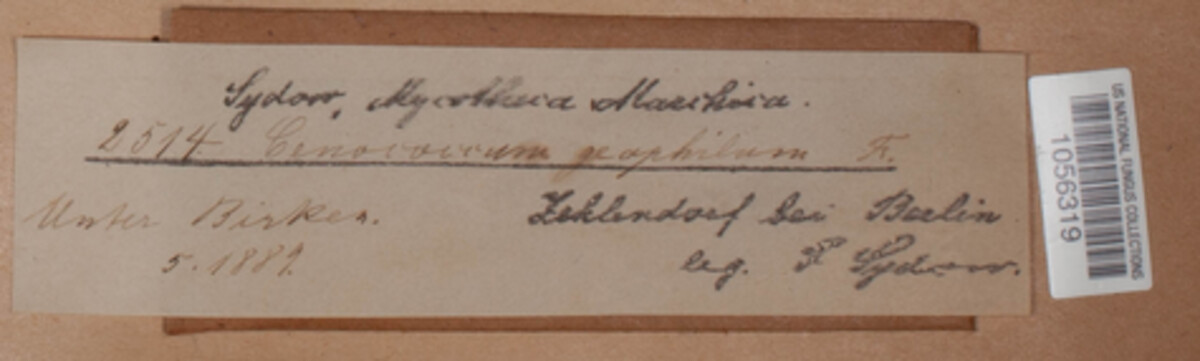 Sydow, Mycotheca Marchica.
2514 Cenococcum geophilum F.
Unter Birken.
Zehlendorf bei Berlin
5. 1889.
leg. P Sydow.
US NATIONAL FUNGUS COLLECTIONS
1056319